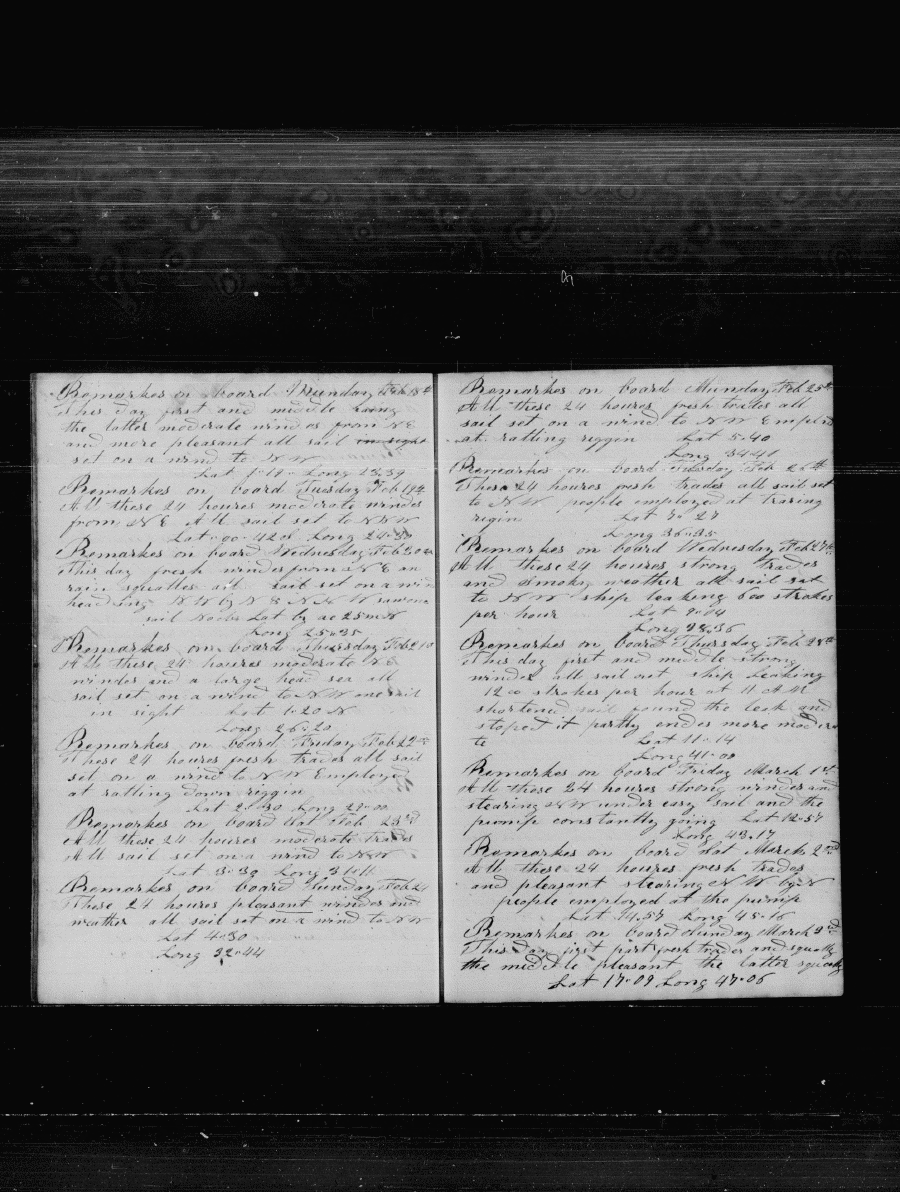 Remarkes on board Munday Feb 18th
This day first and middle
the latter moderate windes from NE
and more pleasant all sail in sight
set on a wind to N W
Lat Long 23-39
Remarkes on board Tuesday Feb 19th
All these 24 houres moderate windes
from N E All sail set to NNW
Lat 00-42 Long 24-
Remarkes on board Wednesday Feb 20th
This day fresh windes from N E an
rain squalles all sail set on a wind
heading N W by N & N N W
sail Lat by ac 25m N
Long 25-35
Remarkes on board Thursday Feb 21
All these 24 houres moderate N E
windes and a large head sea all
sail set on a wind to N W one sail
in sight Lat 1-20 N
Long 26-20
Remarkes on board Friday Feb 22nd
These 24 houres fresh trades all sail
set on a wind to N W Employed
at ratling down riggin
Lat 2-30 Long 29-00
Remarkes on board Sat Feb 23rd
All these 24 houres moderate trades
All sail set on a wind to NNW
Lat 3-39 Long 31-11
Remarkes on board Sunday Feb 24
These 24 houres pleasant windes and
weather all sail set on a wind to N W
Lat 4-30
Long 32-44
Remarkes on board Munday Feb 25th
All these 24 houres fresh trades all
sail set on a wind to N W Employd
at ratling riggen Lat 5-40
Long 34-40
Remarkes on board Tuesday Feb 26th
These 24 houres fresh trades all sail set
to N W people employed at taring
rigin Lat 7-27
Long 36-35
Remarkes on board Wednesday Feb 27th
All these 24 houres strong trades
and smoky weather all sail set
to N W ship leaking 600 strokes
per hour Lat 9-04
Long 38-36
Remarkes on board Thursday Feb 28th
This day first and middle strong
windes all sail out ship leaking
1200 strokes per hour at 11 A M
shortened sail found the leak and
stoped it partly endes more modera
te Lat 11-14
Long 41-00
Remarkes on board Friday March 1st
All these 24 houres strong windes and
stearing NW under easy sail and the
pump constantly going Lat 12-57
Long 43-17
Remarkes on board Sat March 2nd
All these 24 houres fresh trades
and pleasant stearing N W by N
people employed at the pump
Lat 14-57 Long 45-16
Remarkes on board Sunday March 3rd
This day first part fresh trades and squally
the middle pleasant the latter squally
Lat 17-09 Long 47-06